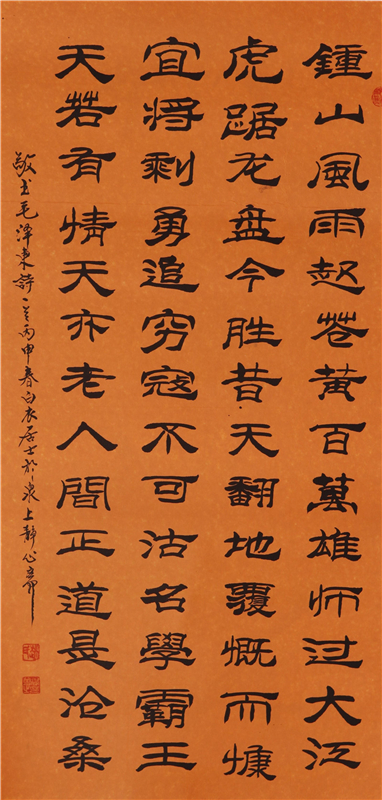 鍾山風雨起苍黄百萬雄师过大江
虎踞龙盘今胜昔天翻地覆慨而慷
宜将剩勇追穷寇不可沽名學霸王
天若有情天亦老人間正道是沧桑
敬书毛泽东詩一首丙申春白衣居士於泉上静心斋